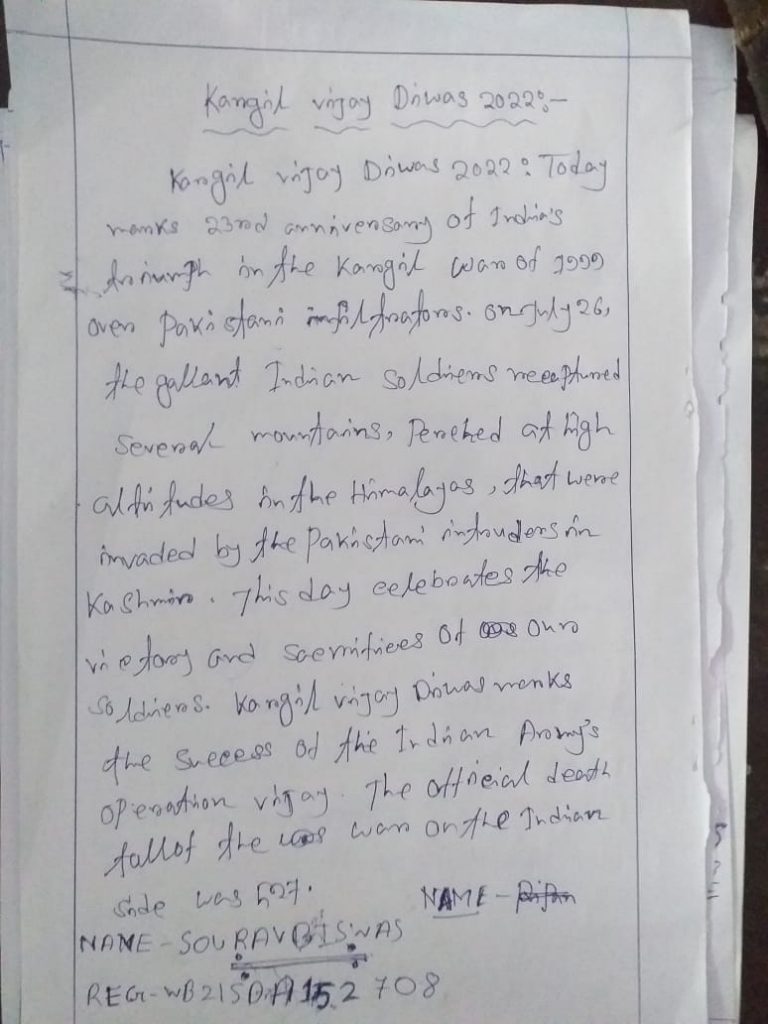 Kargil vijay Diwas 2022:-
Kargil vijay Diwas 2022: Today
marks 23rd anniversary of India's
triumph in the Kargil war of 1999
over Pakistani infiltrators. on July 26,
the gallant Indian soldiers recaptured
several mountains, Perched at high
altitudes in the Himalayas, that were
invaded by the Pakistani intruders in
Kashmir. This day celebrates the
victory and sacrifices of our
soldiers. Kargil vijay Diwas marks
the success of the Indian Army's
operation vijay. The official death
tall of the war on the Indian
side was 527.
NAME -
NAME - SOURAV BISWAS
REG - WB21SDA152708